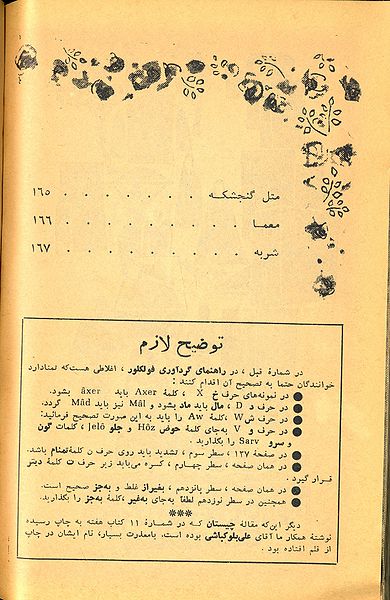 متل گنجشکه . . . . . . . ۱۶۵
معما . . . . . . . . . ۱۶۶
شربه . . . . . . . . . ۱۶۷
توضیح لازم
در شمارهٔ قبل ، در راهنمای گردآوری فولکلور ، اغلاطی هست‌که تمنا دارد
خوانندگان حتما به تصحیح آن اقدام کنند :
● در نمونه‌های حرف خ X ، کلمهٔ Axer باید âxer بشود.
● در حرف د D ، مال باید ماد بشود و Mâl نیز باید Mâd گردد.
● در حرف W ، کلمهٔ Aw را باید به این صورت تصحیح فرمائید:
● در حرف و V به‌جای کلمهٔ حوض Hôz و جلو Jelô ، کلمات گون
و سرو Sarv را بگذارید .
● در صفحهٔ ۱۲۷ ، سطر سوم ، تشدید باید روی حرف ن کلمهٔ باشد.
● در همان صفحه ، سطر چهارم ، کسره می‌باید زیر حرف ت کلمهٔ دبتر
قرار گیرد .
● در همان صفحه ، سطر پانزدهم ، بغیراز غلط و به‌جز صحیح است.
● همچنین در سطر نوزدهم لطفاً به‌جای به‌غیر، کلمهٔ به‌جز را بگذارید.
***
دیگر این‌که مقالهٔ چیستان که در شمارهٔ ۱۱ کتاب هفته به چاپ رسیده
نوشتهٔ همکار ما آقای علی‌بلوکباشی بوده است. بامعذرت بسیار، نام ایشان در چاپ
از قلم افتاده بود .